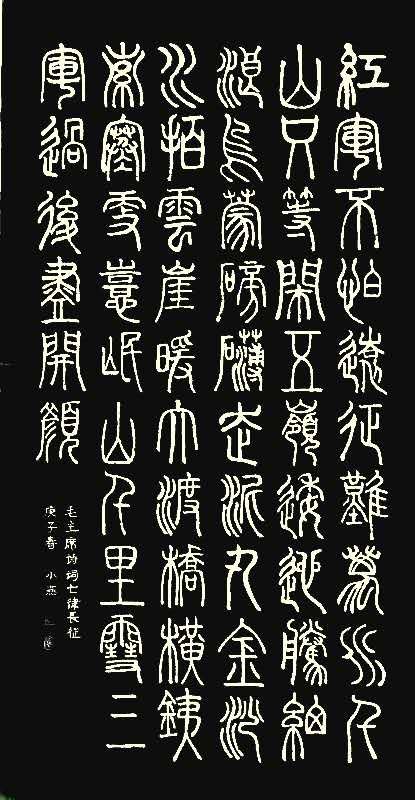 紅軍不怕遠征難萬水千
山只等閑五嶺逶迤騰細
浪烏蒙磅礴走泥丸金沙
水拍雲崖暖大渡橋橫銕
索寒更憙岷山千里雪三
軍過後盡開顏
毛主席诗词七律長征
庚子春 小燕